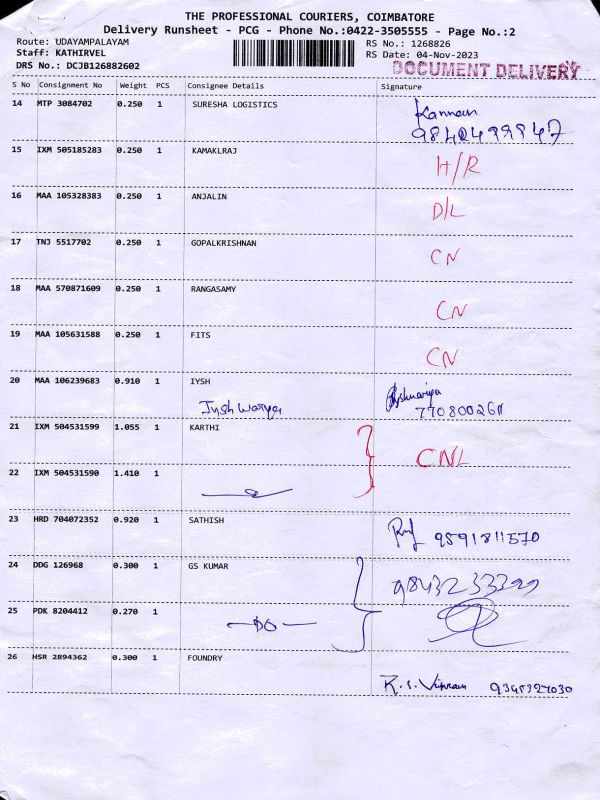 THE PROFESSIONAL COURIERS, COIMBATORE
Delivery Runsheet - PCG - Phone No.:0422-3505555 - Page No.:2
Route: UDAYAMPALAYAM RS No.: 1268826
Staff: KATHIRVEL RS Date: 04-Nov-2023
DRS No.: DCJB126882602 DOCUMENT DELIVERY
S No Consignment No Weight PCS Consignee Details Signature
14 MTP 3084702 0.250 1 SURESHA LOGISTICS Kannan
15 IXM 505185283 0.250 1 KAMAKLRAJ H/R
16 MAA 105328383 0.250 1 ANJALIN D/L
17 TNJ 5517702 0.250 1 GOPALKRISHNAN CN
18 MAA 570871609 0.250 1 RANGASAMY CN
19 MAA 105631588 0.250 1 FITS CN
20 MAA 106239683 0.910 1 IYSH
7708002611
21 IXM 504531599 1.055 1 KARTHI CNL
22 IXM 504531590 1.410 1
23 HRD 704072352 0.920 1 SATHISH 9591811570
24 DDG 126968 0.300 1 GS KUMAR
25 PDK 8204412 0.270 1 DO
26 HSR 2894362 0.300 1 FOUNDRY